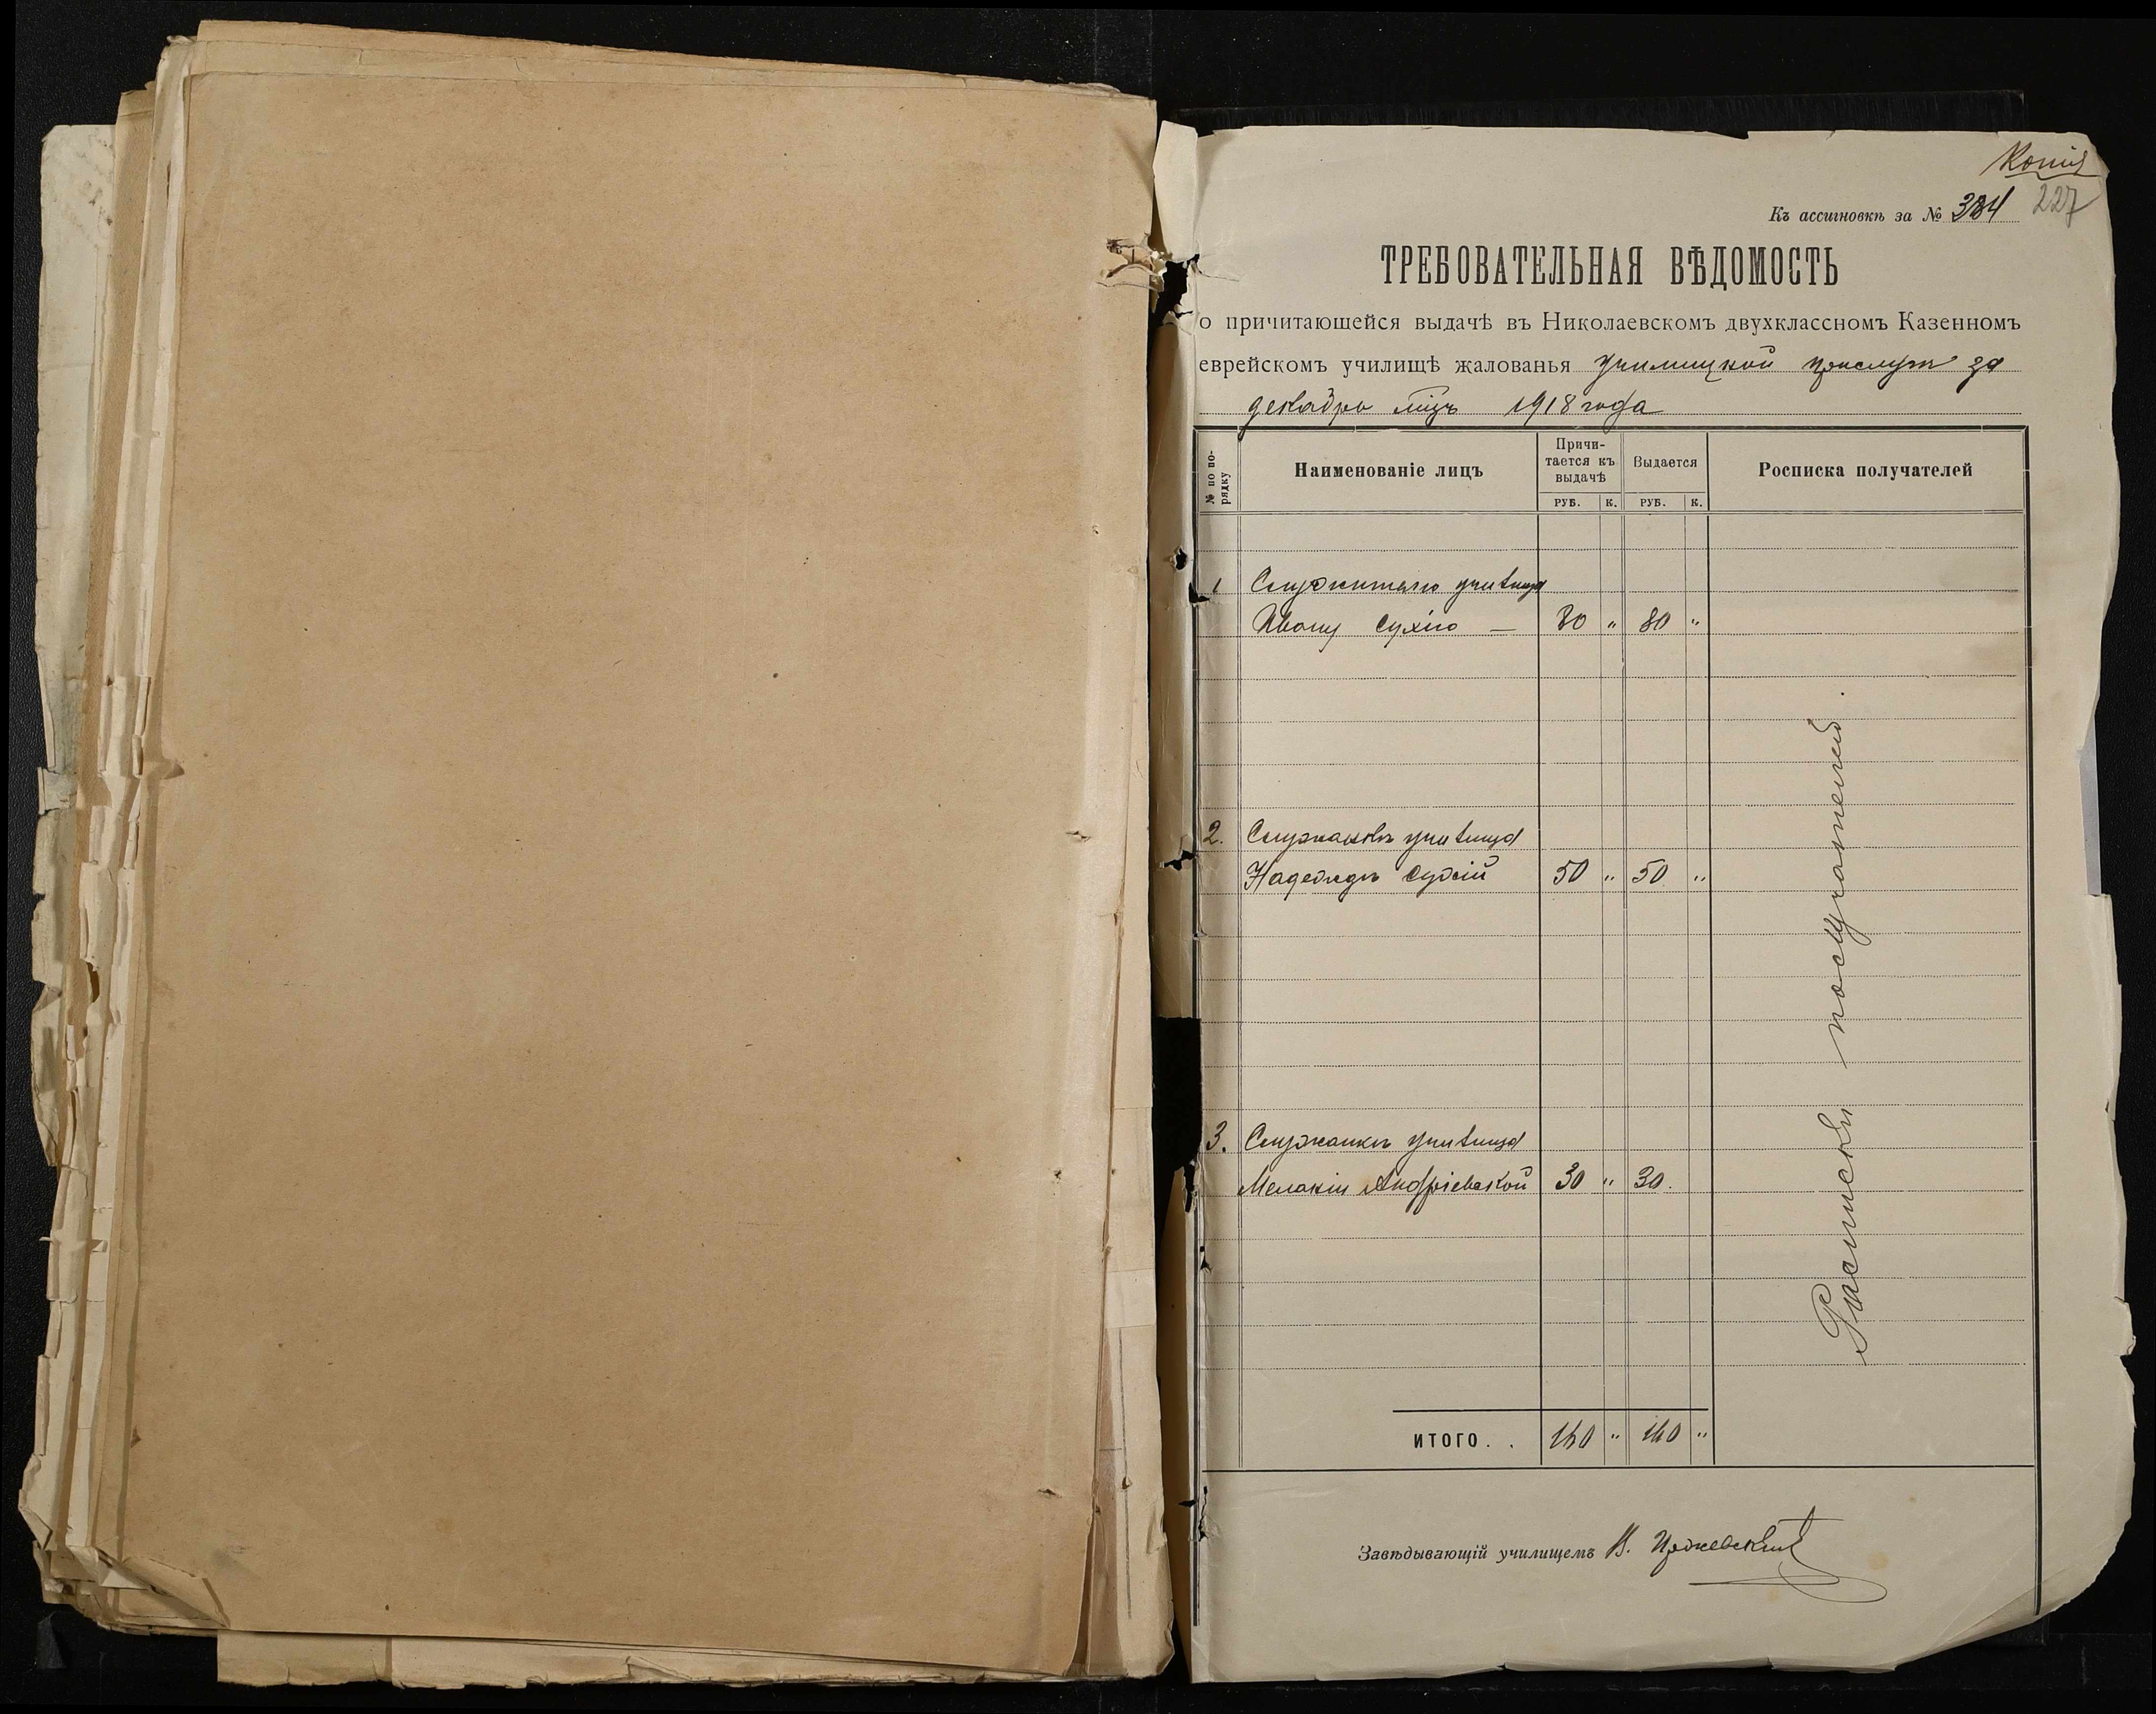 Копія
Къ ассигновкѣ за № 384 227
ТРЕБОВАТЕЛЬНАЯ ВѢДОМОСТЬ
о причитающейся выдачѣ въ Николаевскомъ двухклассномъ Казенномъ
еврейскомъ училищѣ жалованья училищной прислугѣ за
декабрь мѣцъ 1918 года
№ по по-
рядку
Наименованіе лицъ
Причи-
тается къ
выдачѣ
Выдается
Росписка получателей
РУБ. К. РУБ. К.
1 Служителю училища
Ивану Сухію — 80 " 80 "
2. Служанкѣ училища
Надеждѣ Сухій 50 " 50 "
3. Служанкѣ училища
Меланіи Андріевской 30 " 30.
Росписки получателей.
ИТОГО. . 160 " 160 "
Завѣдывающій училищемъ В.